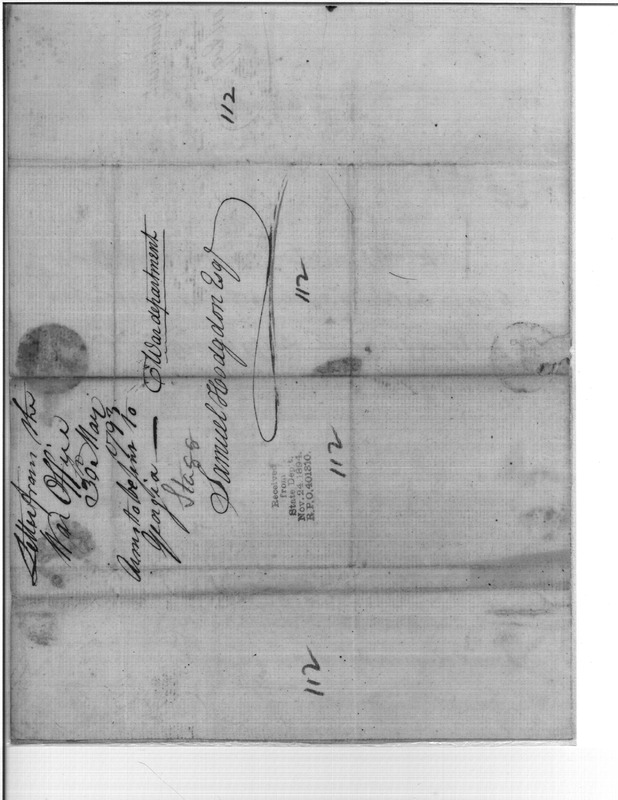 Letter from the
War Office
30th Mar
1793
Arms to be sent to
Georgia —
Stagg
War department
Samuel Hodgdon Esqr
Received
from
State Dept.
Nov. 24, 1894.
R.P.O. 401810.
112
112
112
112